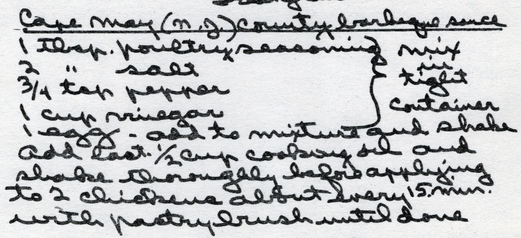 Cape May (N.J.) County barbeque sauce
1 tbsp. poultry seasoning } mix
2 " salt in
3/4 tsp pepper tight
1 cup vinegar container
1 egg - add to mixture and shake
add last 1/2 cup cooking oil and
shake thoroughly before applying
to 2 chickens about every 15 min.
with pastry brush until done